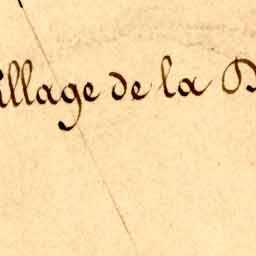 illage de la D